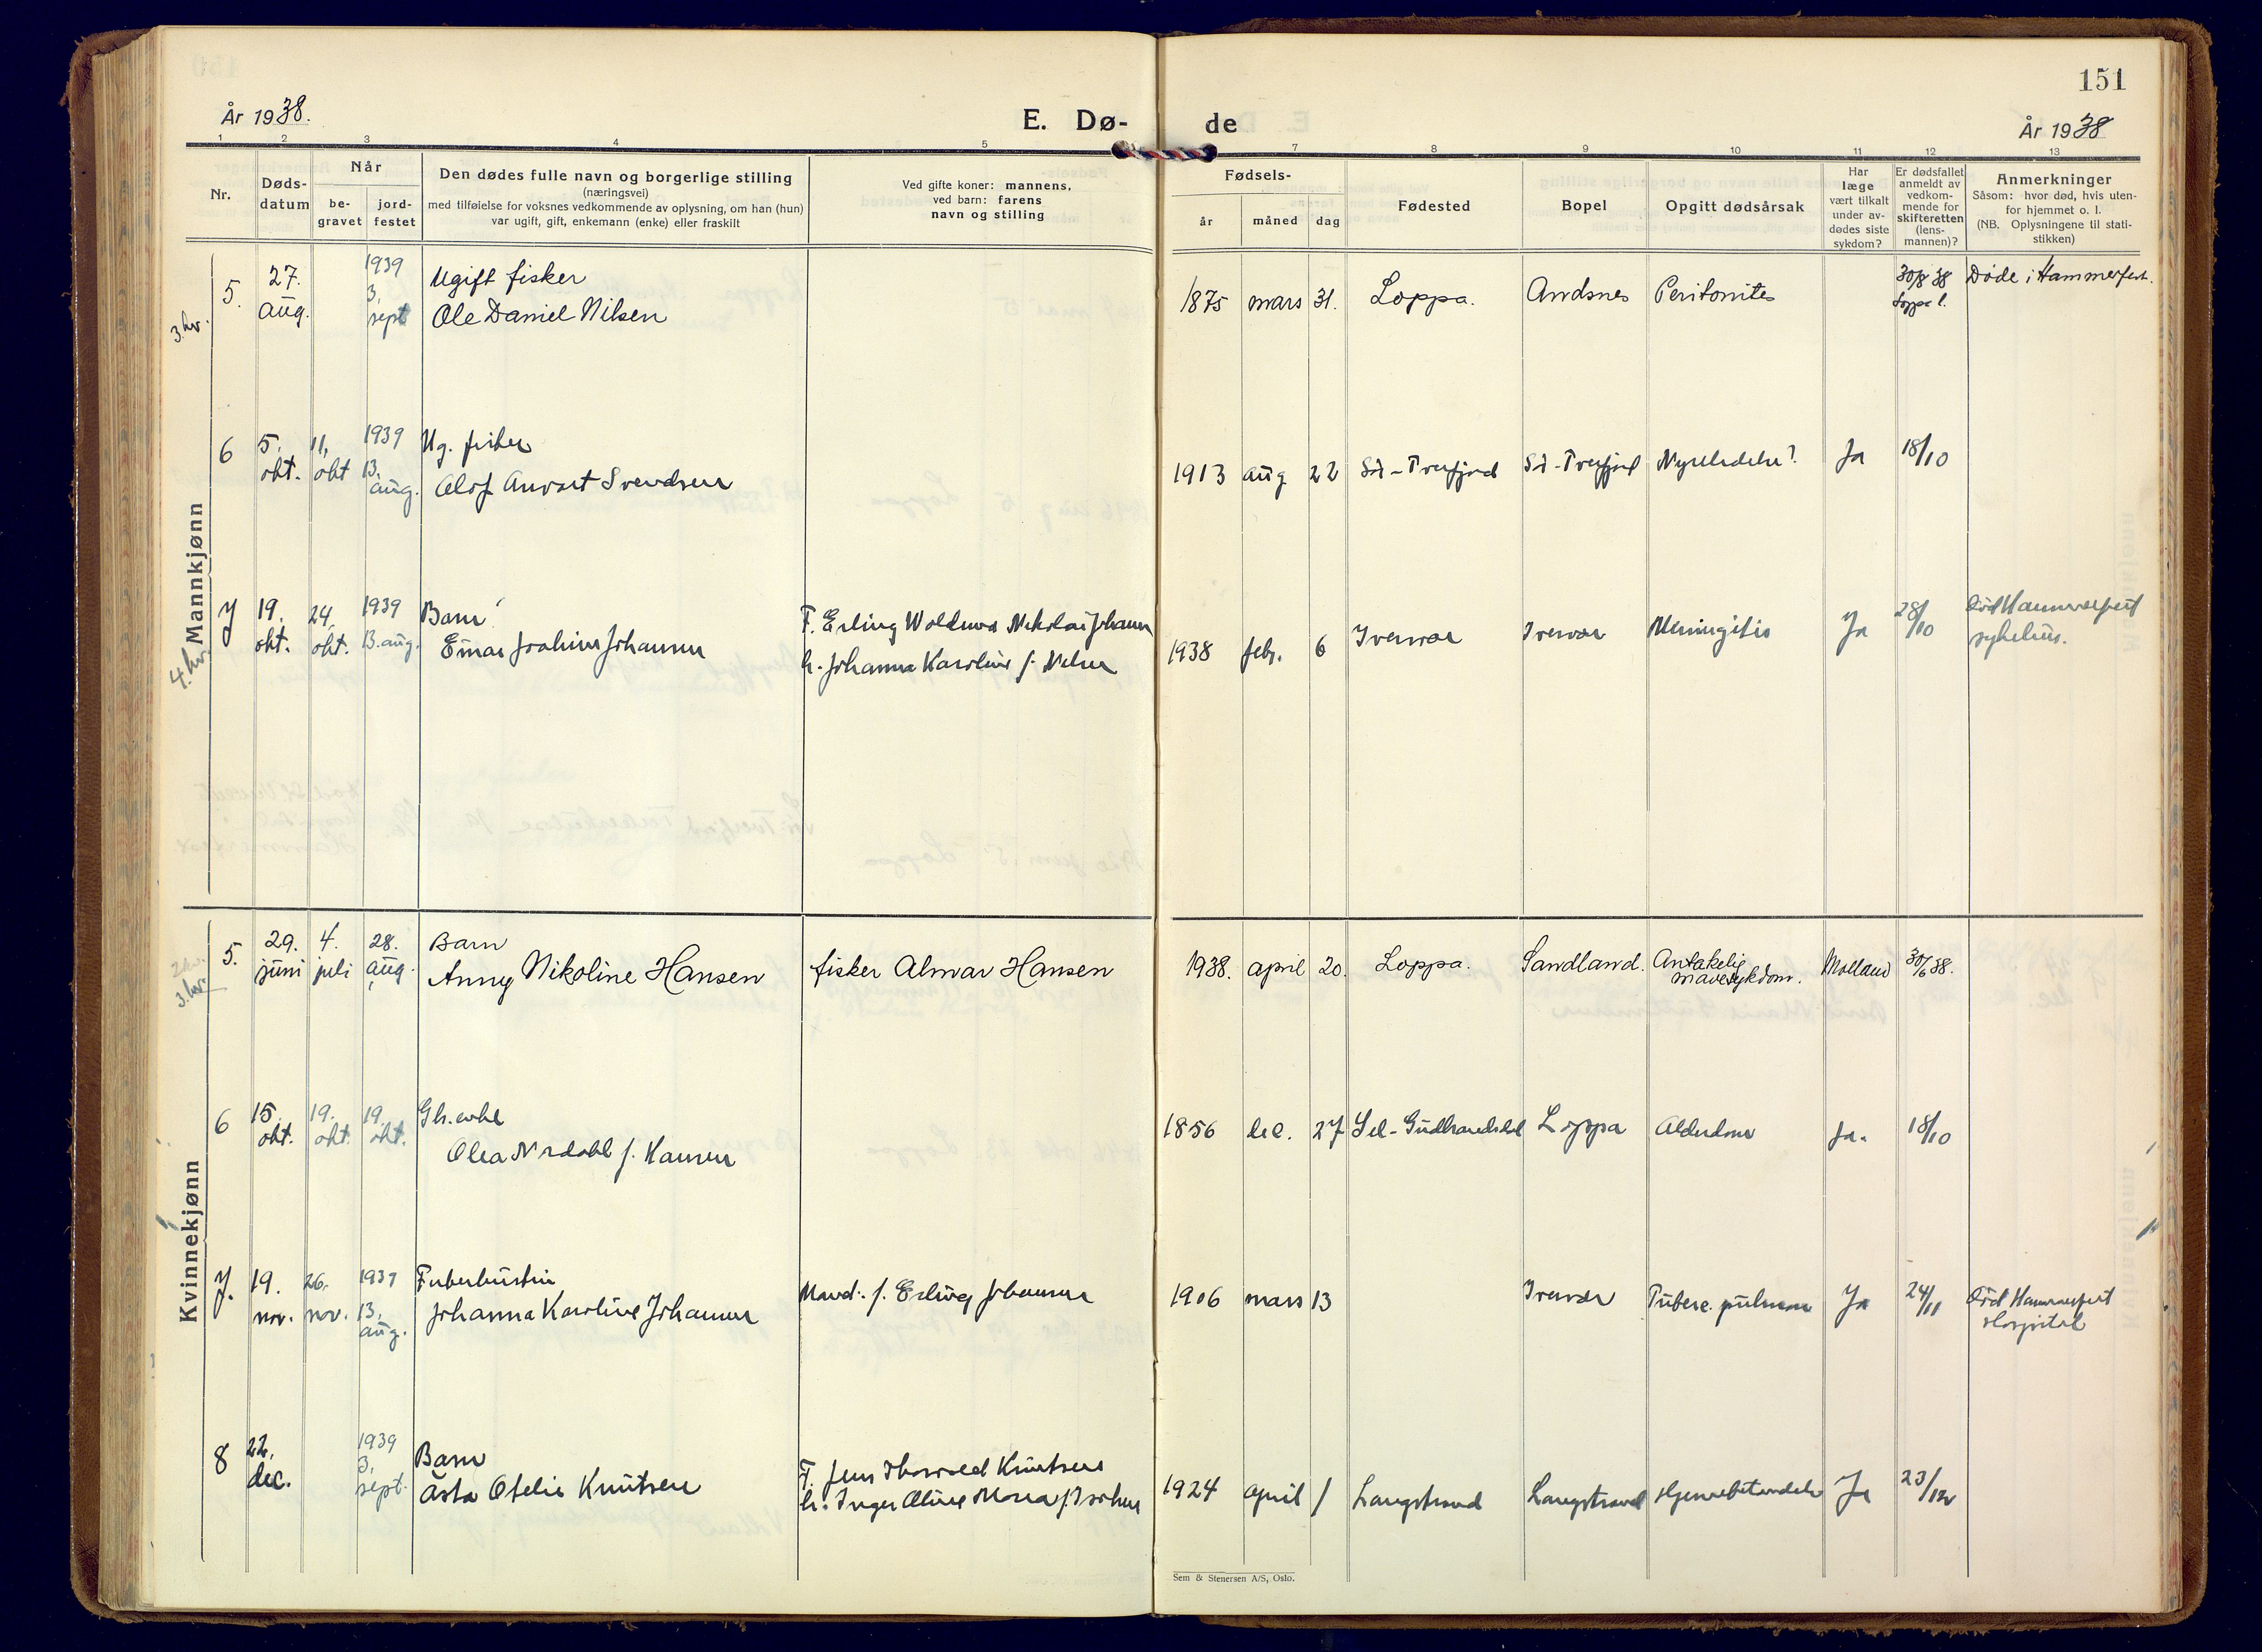 151
År 1938.
E. Dø-
de
År 1938
1 2 3 4 5
7 8 9 10 11 12 13
Nr.
Døds-
datum
Når
be-
gravet
jord-
festet
Den dødes fulle navn og borgerlige stilling
(næringsvei)
med tilføielse for voksnes vedkommende av oplysning, om han (hun)
var ugift, gift, enkemann (enke) eller fraskilt
Ved gifte koner: mannens,
ved barn: farens
navn og stilling
Fødsels-
år
måned
dag
Fødested
Bopel
Opgitt dødsårsak
Har
læge
vært tilkalt
under av-
dødes siste
sykdom?
Er dødsfallet
anmeldt av
vedkom-
mende for
skifteretten
(lens-
mannen)?
Anmerkninger
Såsom: hvor død, hvis uten-
for hjemmet o. l.
(NB. Oplysningene til stati-
stikken)
Mannkjønn
3. kv.
5.
27.
aug.
1939
3.
sept
Ugift fisker
Ole Daniel Nilsen
1875 mars 31.
Loppa.
Andsnes
Peritonites
30/8 38
Loppa l.
Døde i Hammerfest.
6
5.
okt.
11.
okt
1939
13.
aug.
Ug. fisker
Olof Anvart Svendsen
1913 aug 22
Sør-Tverrfjord
Sør-Tverrfjord
Nyrelidelse?
Ja
18/10
4. kv.
7
19.
okt.
24.
okt.
1939
13. aug.
Barn
Einar Joakim Johansen
F. Erling Nikolai Johansen
h. Johanna Karoline f. Nilsen
1938 febr. 6
Iversvær
Iversvær
Meningitis
Ja
28/10
Død Hammerfest
sykehus.
Kvinnekjønn
3. kv.
5.
29.
juni
4.
juli
28.
aug.
Barn
Anny Nikoline Hansen
fisker Almar Hansen
1938. april 20.
Loppa.
Sandland.
Antakelig
mavesykdom.
30/6 38.
6
15.
okt.
19.
okt.
19.
okt.
Olea f. Hansen
1856 dec. 27
Sel-Gudbrandsdal
Loppa
Alderdom
Ja.
18/10
7.
19.
nov.
26.
nov.
1939
13.
aug.
Fiskerhustru
Johanna Karoline Johansen
Mand: f. Erling Johansen
1906 mars 13
Iversvær
Tuberc. pulmon
Ja
24/11
Død Hammerfest
Hospital
8
22.
dec.
1939
3.
sept.
Barn
Åsta Otelie Knutsen
F. Jens Thorvald Knutsen
h. Inger Oline Maria f. Isaksen
1924 april 1
Langstrand
Langstrand
Hjernebetendelse
Ja
23/12
Sem & Stenersen A/S, Oslo.